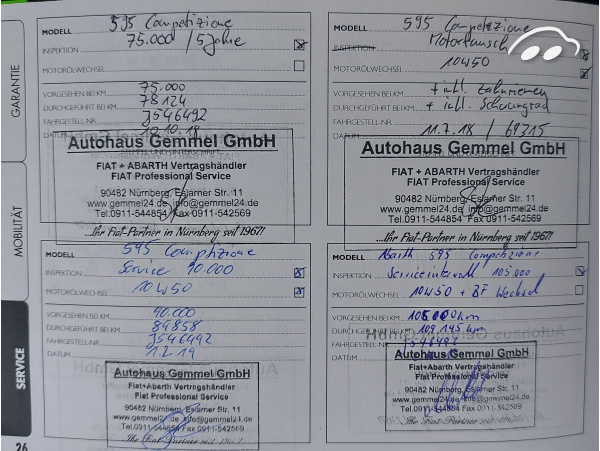 GARANTIE
MOBILITÄT
SERVICE
26
MODELL 595 Competizione
75.000 / 5 Jahre
INSPEKTION
MOTORÖLWECHSEL
VORGESEHEN BEI KM 75.000
DURCHGEFÜHRT BEI KM 78124
FAHRGESTELL-NR. J546492
DATUM 10.10.18
Autohaus Gemmel GmbH
FIAT + ABARTH Vertragshändler
FIAT Professional Service
90482 Nürnberg, Eslarner Str. 11
www.gemmel24.de info@gemmel24.de
Tel.0911-544854 Fax 0911-542569
...Ihr Fiat-Partner in Nürnberg seit 1967!
MODELL 595 Competizione
INSPEKTION Motortausch
MOTORÖLWECHSEL 10W50
VORGESEHEN BEI KM + inkl. Zahnriemen
DURCHGEFÜHRT BEI KM + inkl. Schwungrad
FAHRGESTELL-NR.
DATUM 11.7.18 / 69315
Autohaus Gemmel GmbH
FIAT + ABARTH Vertragshändler
FIAT Professional Service
90482 Nürnberg, Eslarner Str. 11
www.gemmel24.de info@gemmel24.de
Tel.0911-544854 Fax 0911-542569
...Ihr Fiat-Partner in Nürnberg seit 1967!
MODELL 595 Comptizione
INSPEKTION Service 90.000
MOTORÖLWECHSEL 10W50
VORGESEHEN BEI KM 90.000
DURCHGEFÜHRT BEI KM 84858
FAHRGESTELL-NR. J546492
DATUM 1.2.19
Autohaus Gemmel GmbH
Fiat+Abarth Vertragshändler
Fiat Professional Service
90482 Nürnberg, Eslarner Str. 11
www.gemmel24.de info@gemmel24.de
Tel.0911-544854 Fax 0911-542569
Ihr Fiat-Partner
MODELL Abarth 595 Competizione
INSPEKTION Serviceintervall 105.000
MOTORÖLWECHSEL 10W50 + BF Wechsel
VORGESEHEN BEI KM 105000km
DURCHGEFÜHRT BEI KM 109.145 km
FAHRGESTELL-NR. J546492
DATUM
Autohaus Gemmel GmbH
Fiat+Abarth Vertragshändler
Fiat Professional Service
90482 Nürnberg, Eslarner Str. 11
www.gemmel24.de info@gemmel24.de
Tel.0911-544854 Fax 0911-542569
Ihr Fiat-Partner